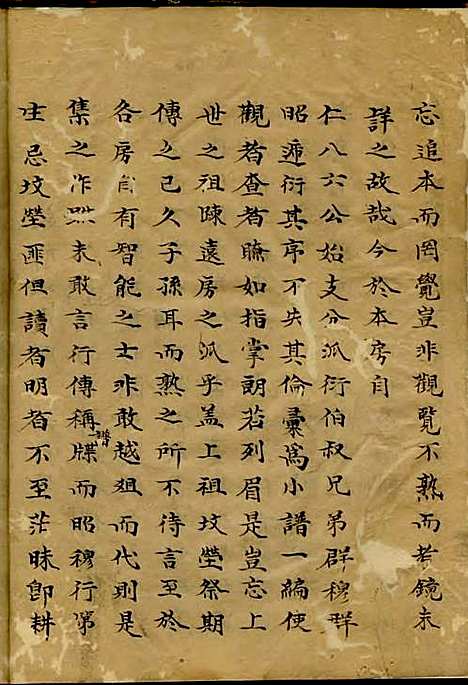 忘追本而罔覺豈非觀覽不熟而考鏡未
詳之故哉今於本房自
仁八六公始支分派衍伯叔兄弟群穆群
昭遞衍其序不失其倫彙為小譜一編使
觀者查者瞭如指掌朗若列眉是豈忘上
世之祖陳遠房之派乎盖上祖坟塋祭期
傳之已久子孫耳而熟之所不待言至於
各房自有智能之士非敢越俎而代則是
集之作雖未敢言行傳稱牒而昭穆行第
生忌坟塋匪但讀者明者不至茫昧即耕